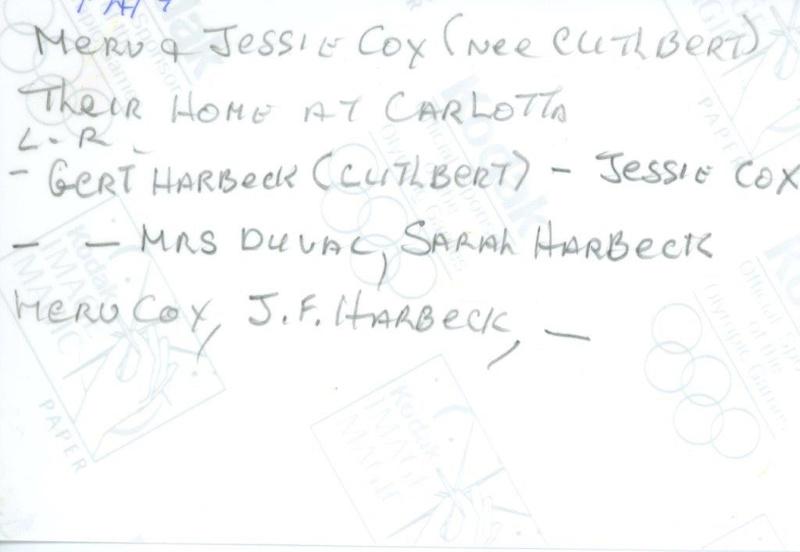 MERV & JESSIE COX (NEE CUTHBERT)
THEIR HOME AT CARLOTTA
L - R -
- GERT HARBECK (CUTHBERT) - JESSIE COX
- - MRS DUVAL, SARAH HARBECK
MERV COX, J.F. HARBECK, -
Kodak
IMAGE
MAGIC
PAPER
Kodak
Official Sponsor
of the
Olympic Games